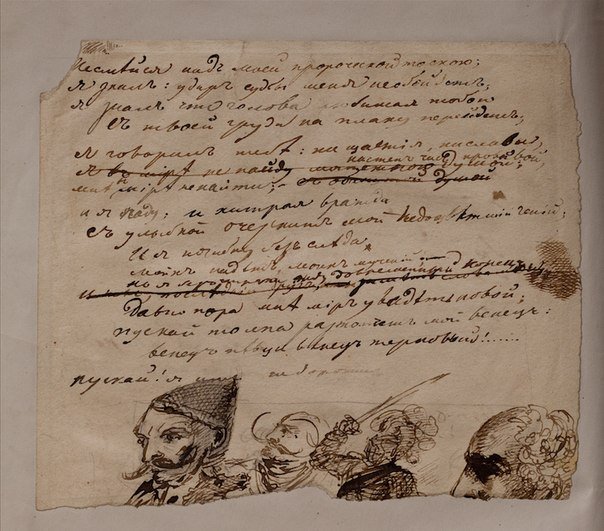 Несмѣйся надъ моей пророческой тоскою;
Я зналъ: ударъ судьбы меня необойдетъ;
Я зналъ что голова любимая тобой
Съ твоей груди на плаху перейдетъ;
Я говорилъ тебѣ: ни щастія, ни славы
настанетъ часъ кровавой,
Я въ мірѣ не найду душой;
Мнѣ въ мірѣ ненайти; — душой
и я паду; и хитрая вражда
Съ улыбкой очернитъ мой недоцвѣтшій геній;
И я погибну безъ слѣда
Моихъ надеждъ, моихъ мученій
но я довременный конецъ
Давно пора мнѣ міръ увидѣть новой;
Пускай толпа растопчетъ мой вѣнецъ:
Вѣнецъ пѣвца вѣнецъ терновый!.....
Пускай! я не дорожилъ